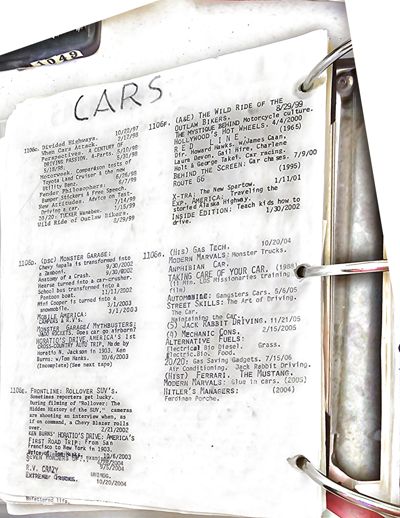 1049
CARS
1106c. Divided Highways. 10/22/97
When Cars Attack. 2/17/98
Perspective: A CENTURY OF
DRIVING PASSION. 4-Parts. 5/31/98
Motorweek. Comparison tests of
Toyota Land Cruiser & the new
Utility Benz.
Fender Philosophers.
Bumper Stickers & Free Speech.
New Attitudes. Advice on Test-
Driving Cars.
20/20: TUCKER
Wild Ride of Outlaw Bikers.
8/29/99
1106D. (DSC) MONSTER GARAGE:
Chevy Impala is transformed into
a Zamboni. 9/30/2002
Anatomy of a Crash. 9/30/2002
Hearse turned into a car-crusher.
School bus transformed into a
Pontoon boat. 11/11/2002
Mini Cooper is turned into a
snowmobile. 3/1/2003
MOBILE AMERICA:
CAMPERS & R.V's. 3/1/2003
MONSTER GARAGE/ MYTHBUSTERS:
JATO ROCKETS. Does car go airborn?
HORATIO'S DRIVE AMERICA'S 1st
CROSS-COUNTRY AUTO TRIP. Made by
Horatio N. Jackson in 1903. Ken
Burns. w/Tom Hanks. 10/6/2003
(Incomplete)(See next tape)
1106E. FRONTLINE: ROLLOVER SUV'S.
Sometimes reporters get lucky.
During filming of "Rollover: The
Hidden History of the SUV," cameras
are shooting an interview when, as
if on command, a Chevy Blazer rolls
over. 2/21/2002
KEN BURNS' HORATIO'S DRIVE: AMERICA'S
FIRST ROAD TRIP: From San
Francisco to New York in 1903.
Voice of Tom Hanks. 10/6/2003
R.V. CRAZY 9/6/2004
EXTREME
10/20/2004
Unfettered life.
1106F. (A&E) THE WILD RIDE OF THE
OUTLAW BIKERS. 8/29/99
THE MYSTIQUE BEHIND Motorcycle culture.
HOLLYWOOD'S HOT WHEELS. 4/4/2000
RED LINE (1965)
Dir. Howard Hawks. w/James Caan,
Laura Devon, Gail Hire, Charlene
Holt & George Takei. Car racing.
BEHIND THE SCREEN: Car chases. 7/9/00
ROUTE 66 (1995)
X-TRA: The New Sportow. 1/11/01
EXP. AMERICA: Traveling the
storied Alaska Highway.
INSIDE EDITION: Teach kids how to
drive. 1/30/2002
(HIS) GAS TECH. 10/20/04
MODERN MARVALS: Monster Trucks.
AMPHIBIAN CAR.
TAKING CARE OF YOUR CAR. (1988)
(11 Min. LDS Missionaries training
film)
AUTOMOBILE: Gangsters Cars. 5/6/05
STREET SKILLS: The Art of Driving.
The Car.
Maintaining the Car.
(5) JACK RABBIT DRIVING. 11/21/05
(4) MECHANIC CONS. 2/15/2006
ALTERNATIVE FUELS:
Electrical Bio Diesel. Grass.
Electric. Bio. Food.
20/20: Gas Saving Gadgets. 7/15/06
Air Conditioning. Jack Rabbit Driving.
(HIST) FERRARI. THE MUSTANG.
MODERN MARVALS: Glue in cars. (2005)
HITLER'S MANAGERS: (2004)
Ferdinan Porche.